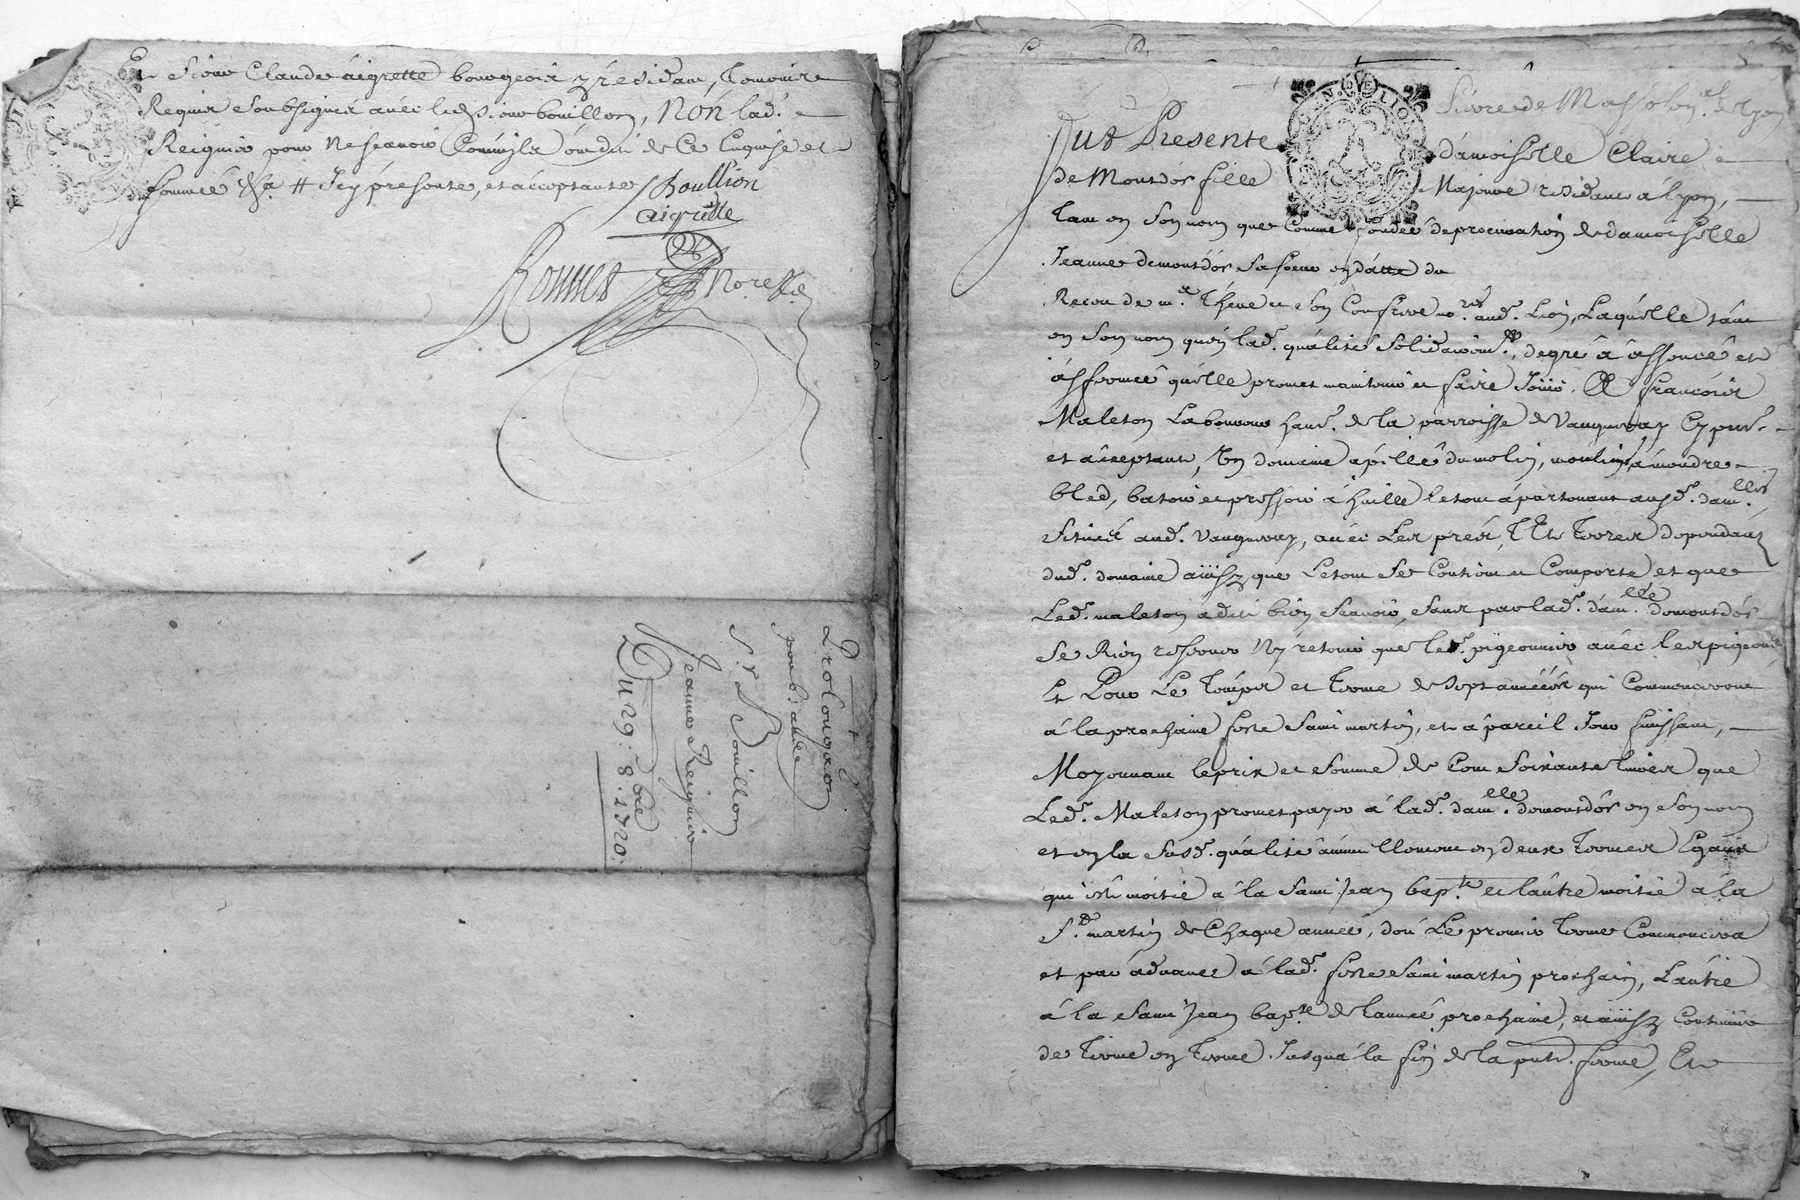 Et sieur Claude aigrette bourgeois y residant, temoins
Requis soubsignés avec ledt sieur bouillon, NON lad.e
Reignier pour ne scavoir Comm'ila ont dit de Ce Enquise et
sommée &a # Icy présente, et acceptante / Boullion
aigrette
Ronnet Noresse
Prolongaon
pour b: aulte
Sr B Bouillon
Jeanne Reignier
Du 29: 8bre 1720:
GEN. DE LION
Livrée de Massoson et Lyon
Fut Presente
damoiselle Claire
de Montdor fille
Majeure residante a lyon,
Tant en son nom que Comme fondée de procuration de damoiselle
Jeanne de montdor sa soeur en datte du
Recou de me Thene et son Confrere no.res aud. Lion, Laquelle tant
en son nom qu'en lad. qualité solidairem.t, de gré à assencé et
affermé qu'elle promet maintenir et faire Jouir. A francois
Maleton Laboureur hant. de la parroisse de Vaugneray Cy pnt.
et acceptant, Un domaine apellé du molin, moulins à moudre
bled, batoir et pressoir à huille letout apartenant ausd. dam.lles
Situés aud. Vaugneray, avec Les prés, Et Terres dependants
dud. domaine ainsy que Letout se Contient et Comporte, et que
Led. maleton a dit bien scavoir, sans par lad. dam.lle demontdor
se Rien reserver Ny retenir que led. pigeonnier avec les pigeons
Et Pour Le Temps et terme de sept années qui Commenceront
à la prochaine feste saint martin, et à pareil Jour finissant,
Moyennant le prix et somme de Cent soixante livres que
Led. Maleton promet payer à lad. dam.lle demontdor en son nom
et en la susd. qualité annuellement en deux termes Egaux
qui est moitié à la saint Jean bap.te et lautre moitié à la
St martin de Chaque année, dont Le premier terme Commencera
et par advance à lad. feste saint martin prochain, Lautre
à la saint Jean bap.te de lannée prochaine, et ainsy Continuer
de terme en terme Jusqu'a la fin de la pnte. ferme, Et